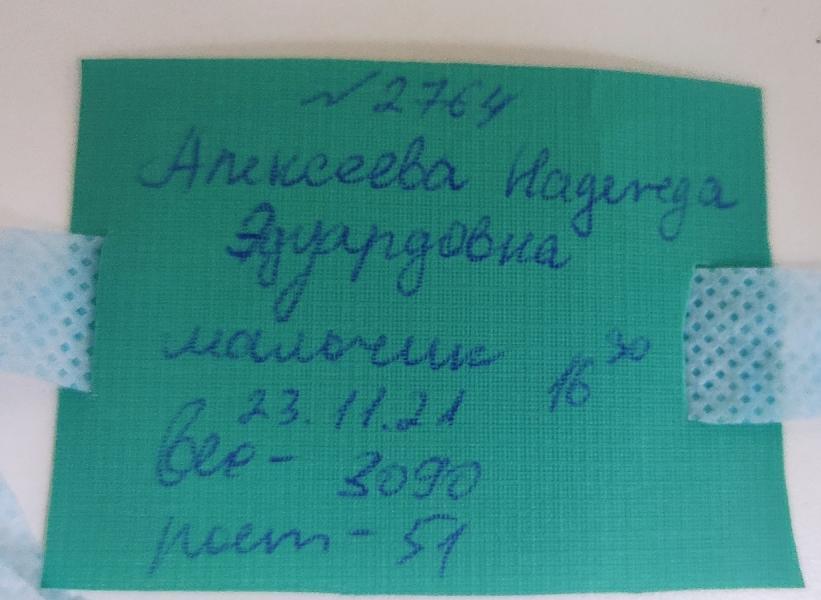 №2764
Алексеева Надежда
Эдуардовна
мальчик 16³⁰
23.11.21
Вес - 3090
рост - 51